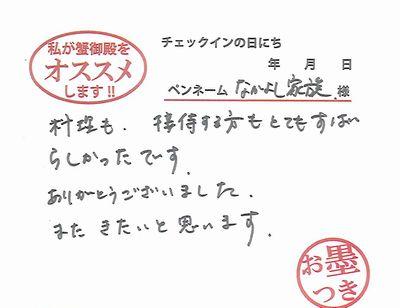 私が蟹御殿を
オススメ
します!!
チェックインの日にち
年 月 日
ペンネーム なかよし家族 様
料理も、接待する方もとてもすばい
らしかったです。
ありがとうございました。
また きたいと思います。
お墨
つき